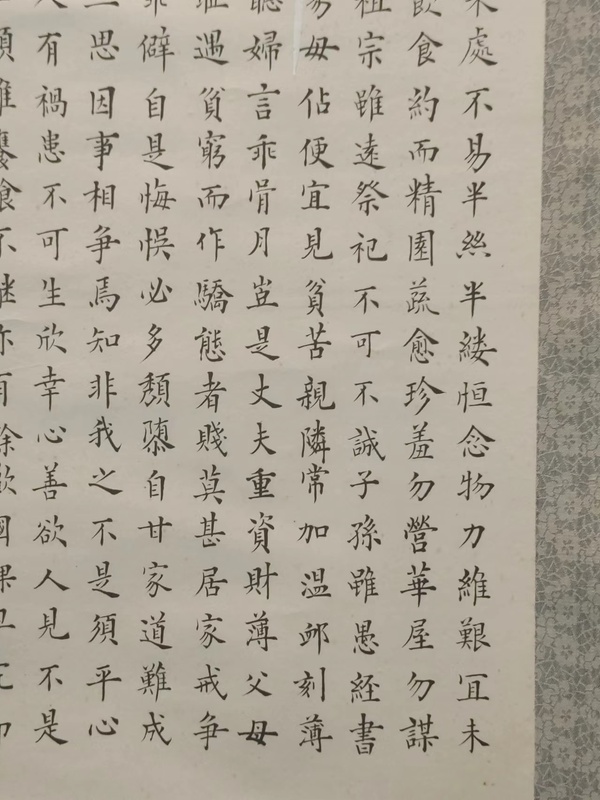 來處不易半絲半縷恒念物力維艱冝未
飲食約而精園蔬愈珍羞勿營華屋勿謀
祖宗雖遠祭祀不可不誠子孫雖愚經書
易毋佔便宜見貧苦親隣常加温卹刻薄
聽婦言乖骨月豈是丈夫重資財薄父母
恥遇貧窮而作驕態者賤莫甚居家戒爭
乖僻自是悔悞必多頹隳自甘家道難成
三思因事相爭焉知非我之不是須平心
人有禍患不可生欣幸心善欲人見不是
順雖饔飧不継亦有餘歡國課早完即